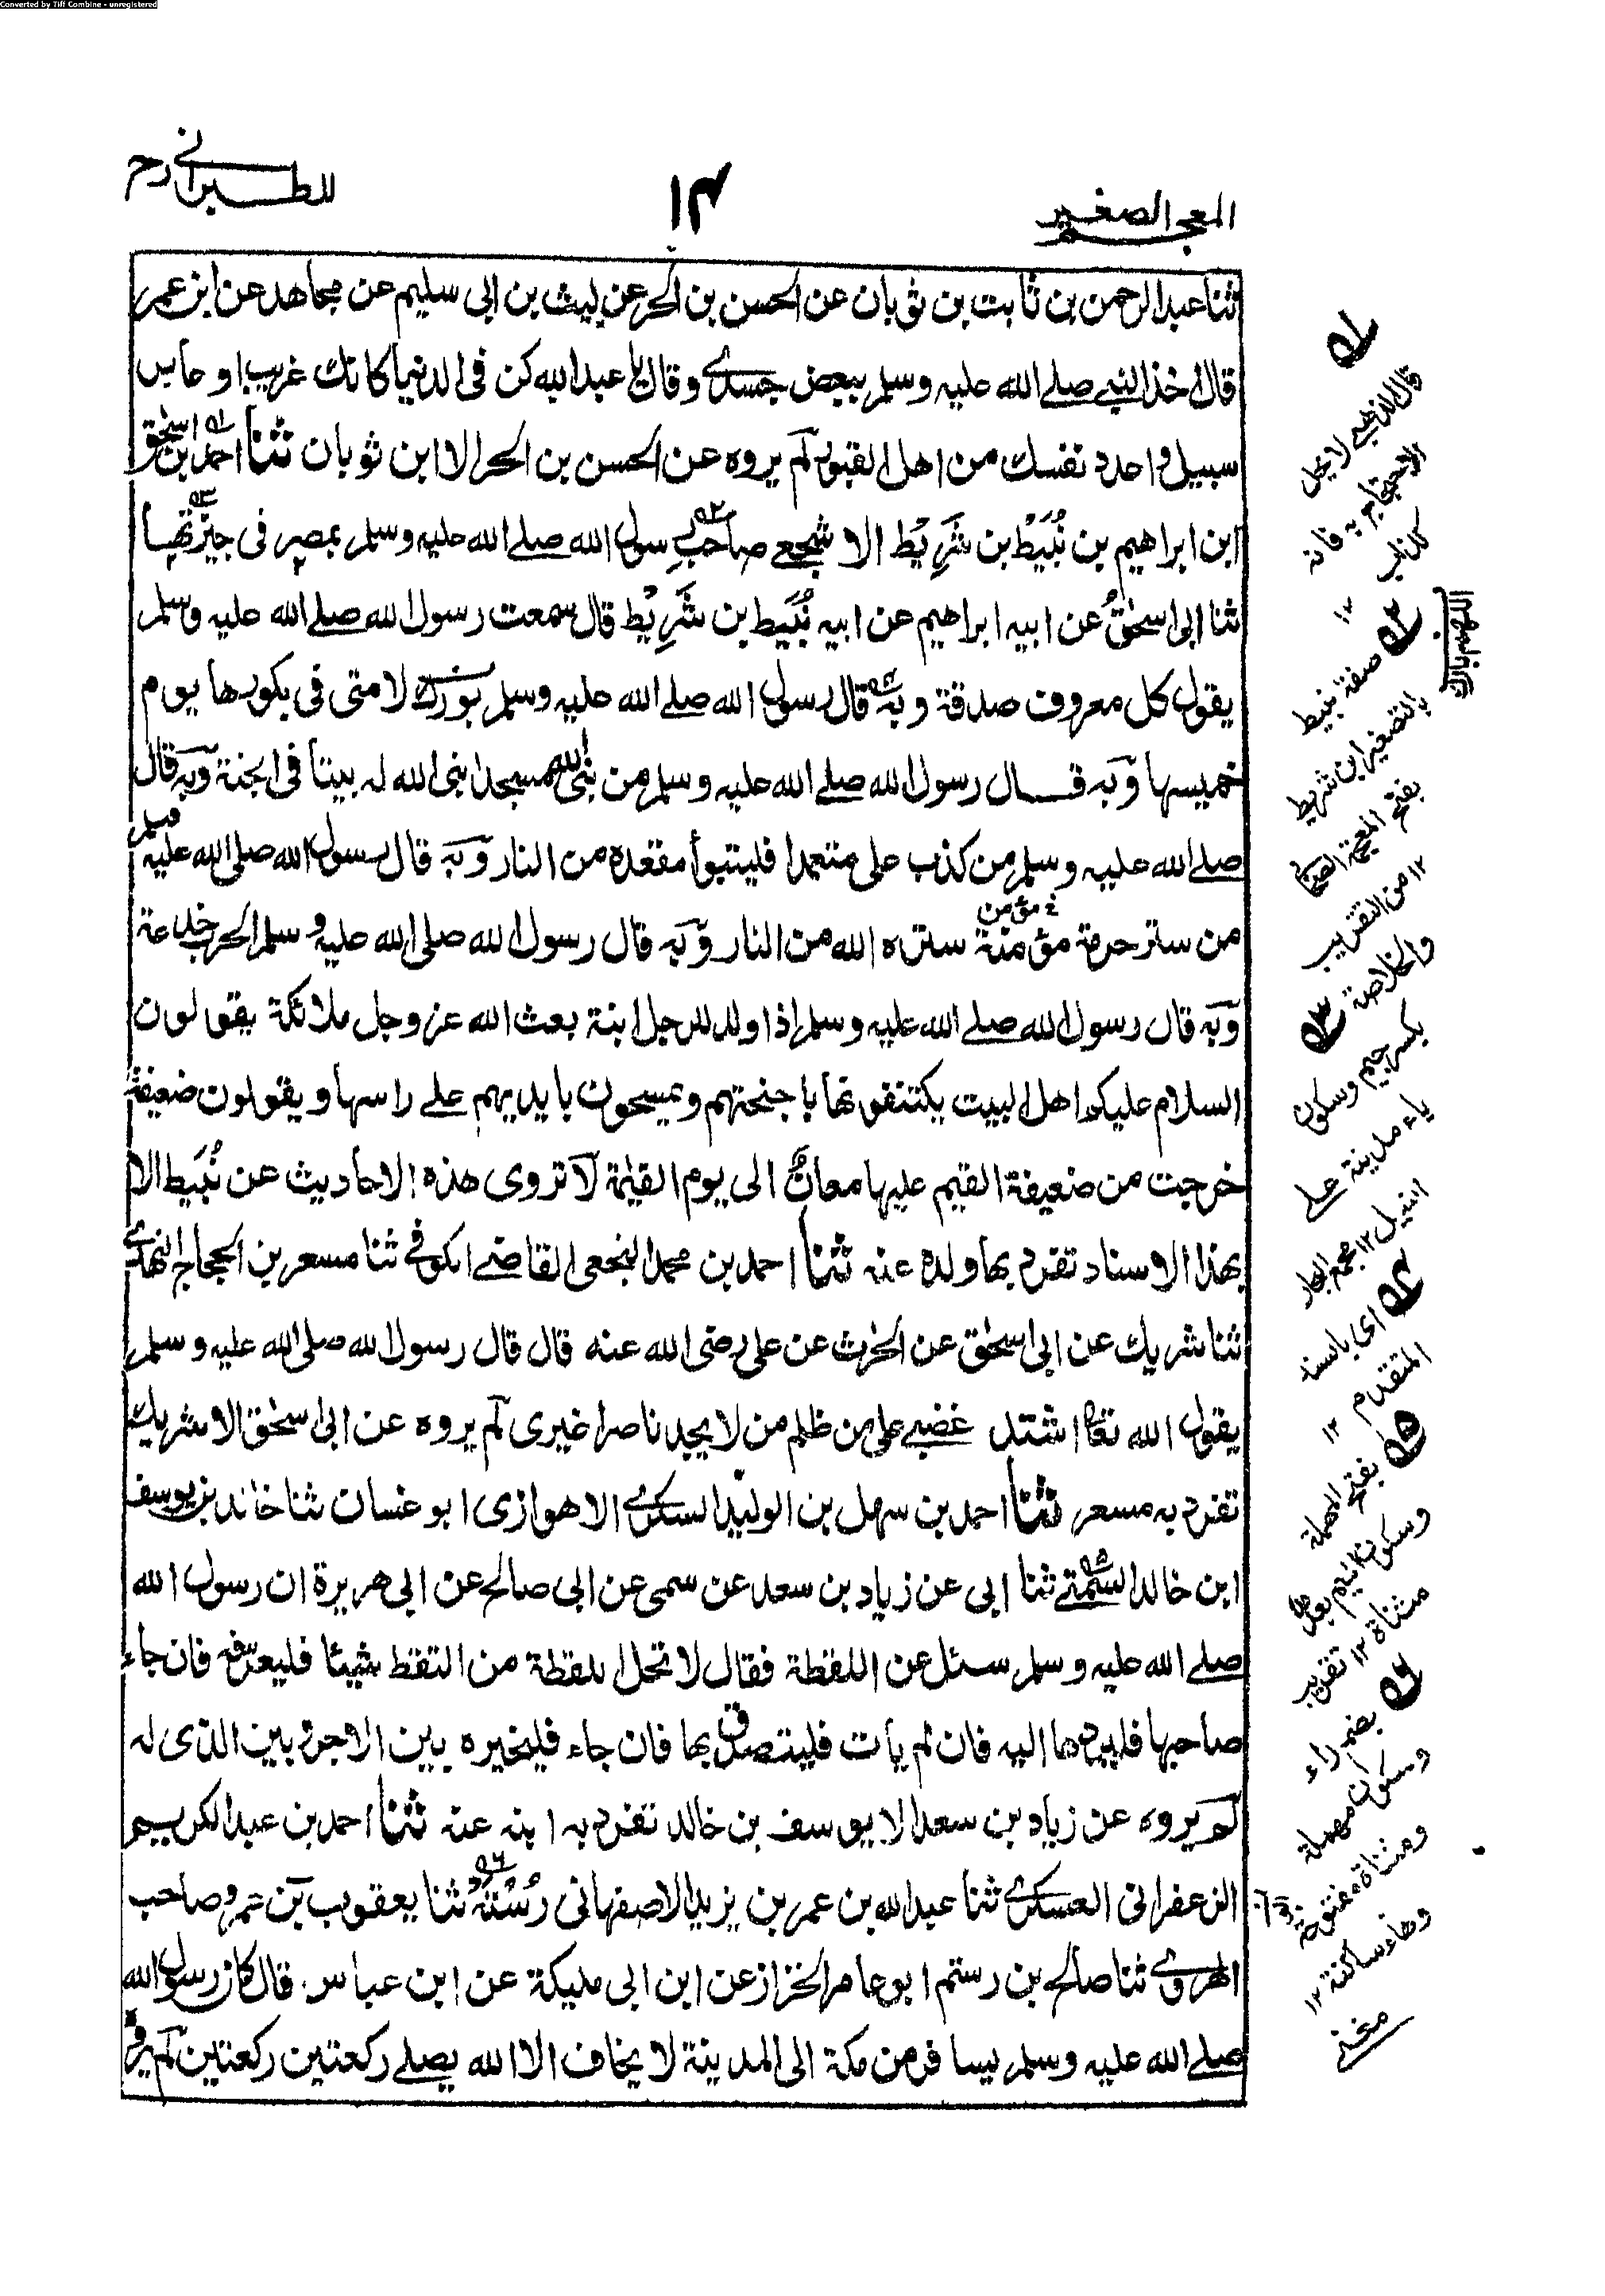 Converted by Tiff Combine - unregistered
المعجم الصغير
١٤
للطبرانى رح
ثنا عبد الرحمن بن ثابت بن ثوبان عن الحسن بن الحر عن ليث بن ابى سليم عن مجاهد عن ابن عمر
قال اخذ النبى صلى الله عليه وسلم ببعض جسدى وقال يا عبد الله كن فى الدنيا كانك غريب او عابر
سبيل واعدد نفسك من اهل القبور لم يروه عن الحسن بن الحر الا ابن ثوبان ثنا احمد بن اسحٰق
ابن ابراهيم بن نُبَيْط بن شَرِيْط الاشجعى صاحب رسول الله صلى الله عليه وسلم بمصر فى جيزتها
ثنا ابى اسحٰق عن ابيه ابراهيم عن ابيه نُبَيط بن شَرِيْط قال سمعت رسول الله صلى الله عليه وسلم
يقول كل معروف صدقة وبه قال رسول الله صلى الله عليه وسلم بورك لامتى فى بكورها يوم
خميسها وبه قال رسول الله صلى الله عليه وسلم من بنى لله مسجدا بنى الله له بيتا فى الجنة وبه قال
صلى الله عليه وسلم من كذب على متعمدا فليتبوأ مقعده من النار وبه قال رسول الله صلى الله عليه وسلم
من ستر حرمة مؤمنة ستره الله من النار وبه قال رسول الله صلى الله عليه وسلم الحرب خدعة
وبه قال رسول الله صلى الله عليه وسلم اذا ولد للرجل ابنة بعث الله عز وجل ملائكة يقولون
السلام عليكم اهل البيت يكتنفونها باجنحتهم ويمسحون بايديهم على راسها ويقولون ضعيفة
خرجت من ضعيفة القيم عليها معانٌ الى يوم القيٰمة لا تروى هذه الاحاديث عن نُبَيط الا
بهذا الاسناد تفرد بها ولده عنه ثنا احمد بن محمد النخعى القاضى الكوفى ثنا مسعر بن الحجاج النهدى
ثنا شريك عن ابى اسحٰق عن الحٰرث عن على رضى الله عنه قال قال رسول الله صلى الله عليه وسلم
يقول الله تعا اشتد غضبى على من ظلم من لا يجد ناصرا غيرى لم يروه عن ابى اسحٰق الا شريك
تفرد به مسعر ثنا احمد بن سهل بن الوليد السكرى الاهوازى ابو غسان ثنا خالد بن يوسف
ابن خالد السَّمْتى ثنا ابى عن زياد بن سعد عن سمى عن ابى صالح عن ابى هريرة ان رسول الله
صلى الله عليه وسلم سئل عن اللقطة فقال لا تحل اللقطة من التقط شيئا فليعرّفه فان جاء
صاحبها فليردها اليه فان لم يأت فليتصدق بها فان جاء فليخيره بين الاجر وبين الذى له
لم يروه عن زياد بن سعد الا يوسف بن خالد تفرد به ابنه عنه ثنا احمد بن عبد الكريم
الزعفرانى العسكرى ثنا عبد الله بن عمر بن يزيد الاصفهانى رُسْتَهْ ثنا يعقوب بن عمرو صاحب
الهروى ثنا صالح بن رستم ابو عامر الخزاز عن ابن ابى مليكة عن ابن عباس قال كان رسول الله
صلى الله عليه وسلم يسافر من مكة الى المدينة لا يخاف الا الله يصلى ركعتين ركعتين لم يروه
قال الذهبى لا يحل
الاحتجاج به فانه
كذاب
١٢
صفة نبيط
بالتصغير ابن شريط
بفتح المعجمة
١٢ من التقريب
والخلاصة
بكسر جيم وسكون
ياء مدينة على
النيل ١٢ مجمع البحار
اى باسناد
المتقدم
١٢
بفتح المهملة
وسكون الميم بعدها
مثناة ١٢ تقريب
بضم راء
وسكون مهملة
ومثناة مفتوحة
وهاء ساكنة ١٢
مغنى